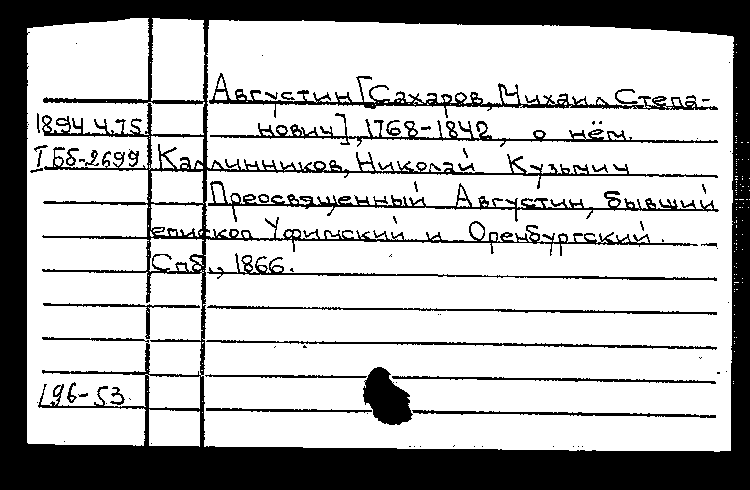 Августин [Сахаров, Михаил Степа-
18.94.4.75. нович], 1768-1842, о нём.
I Бб-2699 Каллинников, Николай Кузьмич
Преосвященный Августин, бывший
епископ Уфимский и Оренбургский.
Спб., 1866.
196-53